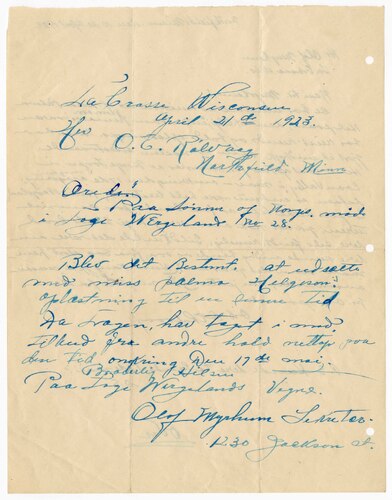 La Crosse Wisconsin
April 21 de 1923.
Her O. E. Rölvaag
Northfield Minn
Ærede
Paa Sönner of Norges møde
i Loge Wergeland No 28.
Blev det Bestemt. at udsætte
med miss palma
oplæsning til en senere Tid
Da Logen, har tagt i mod,
Tilbud fra andre hold netop paa
den Tid omkring Den 17 de mai,
Broderlig Hilsen
Paa Loge Wergelands Vegne.
Olof Myrhum Sekretær.
1230 Jackson st.